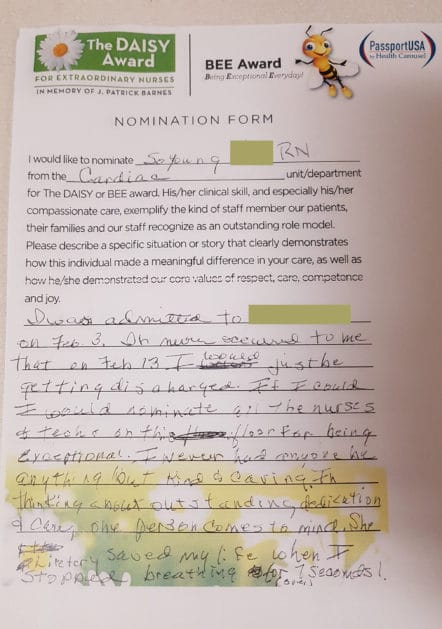 The DAISY
Award
FOR EXTRAORDINARY NURSES
IN MEMORY OF J. PATRICK BARNES
BEE Award
Being Exceptional Everyday!
PassportUSA
by Health Carousel
NOMINATION FORM
I would like to nominate SoYoung RN
from the Cardiac unit/department
for The DAISY or BEE award. His/her clinical skill, and especially his/her
compassionate care, exemplify the kind of staff member our patients,
their families and our staff recognize as an outstanding role model.
Please describe a specific situation or story that clearly demonstrates
how this individual made a meaningful difference in your care, as well as
how he/she demonstrated our core values of respect, care, competence
and joy.
I was admitted to
on Feb 3. It never occurred to me
that on Feb 13 I would just be
getting discharged. If I could
I would nominate all the nurses
& techs on this floor for being
exceptional. I never had anyone be
anything but kind & caring. In
thinking about outstanding dedication
& care, one person comes to mind. She
saved my life when I
stopped breathing for 7 seconds!
(over)